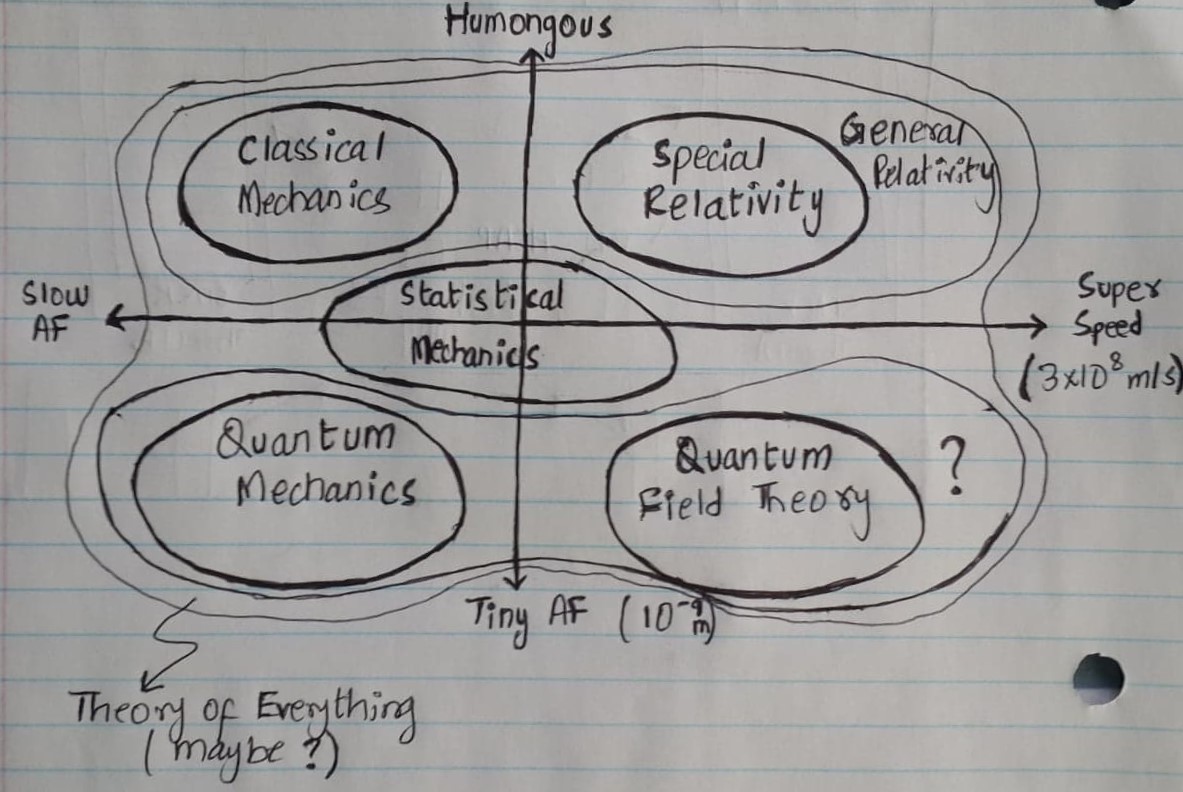 Humongous
Classical
Mechanics
Special
Relativity
General
Relativity
Slow
AF
Statistical
Mechanics
Super
Speed
(3x10⁸ m/s)
Quantum
Mechanics
Quantum
Field Theory
?
Tiny AF (10⁻⁹ m)
Theory of Everything
(maybe ?)